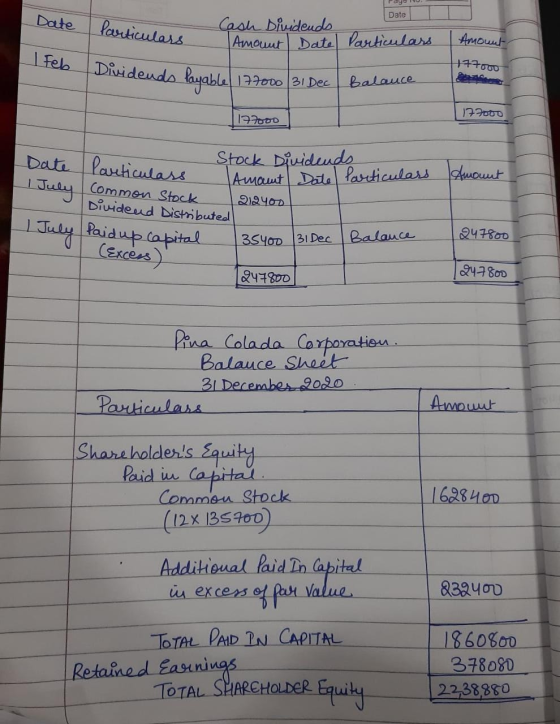 Page No.
Date
Cash Dividends
Date Particulars Amount Date Particulars Amount
1 Feb Dividends Payable 177000 31 Dec Balance 177000
177000 177000
Stock Dividends
Date Particulars Amount Date Particulars Amount
1 July Common Stock 212400
Dividend Distributed
1 July Paid up Capital 35400 31 Dec Balance 247800
(Excess)
247800 247800
Pina Colada Corporation.
Balance Sheet
31 December 2020
Particulars Amount
Shareholder's Equity
Paid in Capital.
Common Stock 1628400
(12 x 135700)
Additional Paid In Capital
in excess of par value 232400
TOTAL PAID IN CAPITAL 1860800
Retained Earnings 378080
TOTAL SHAREHOLDER Equity 22,38,880